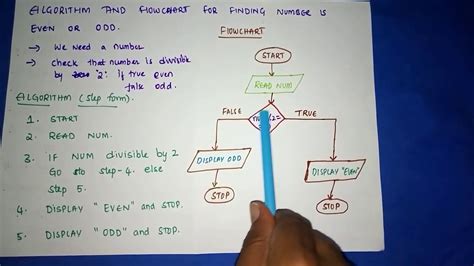 ALGORITHM AND FLOWCHART FOR FINDING NUMBER IS
EVEN OR ODD.
→ We need a number
→ check that number is divisible
by 2: if true even
false odd.
ALGORITHM (step form).
1. START
2. READ NUM.
3. IF NUM divisible by 2
Go to step-4. else
step 5.
4. DISPLAY "EVEN" and STOP.
5. DISPLAY "ODD" and STOP.
FLOWCHART
START
READ NUM
FALSE
TRUE
DISPLAY ODD
DISPLAY "EVEN"
STOP
STOP